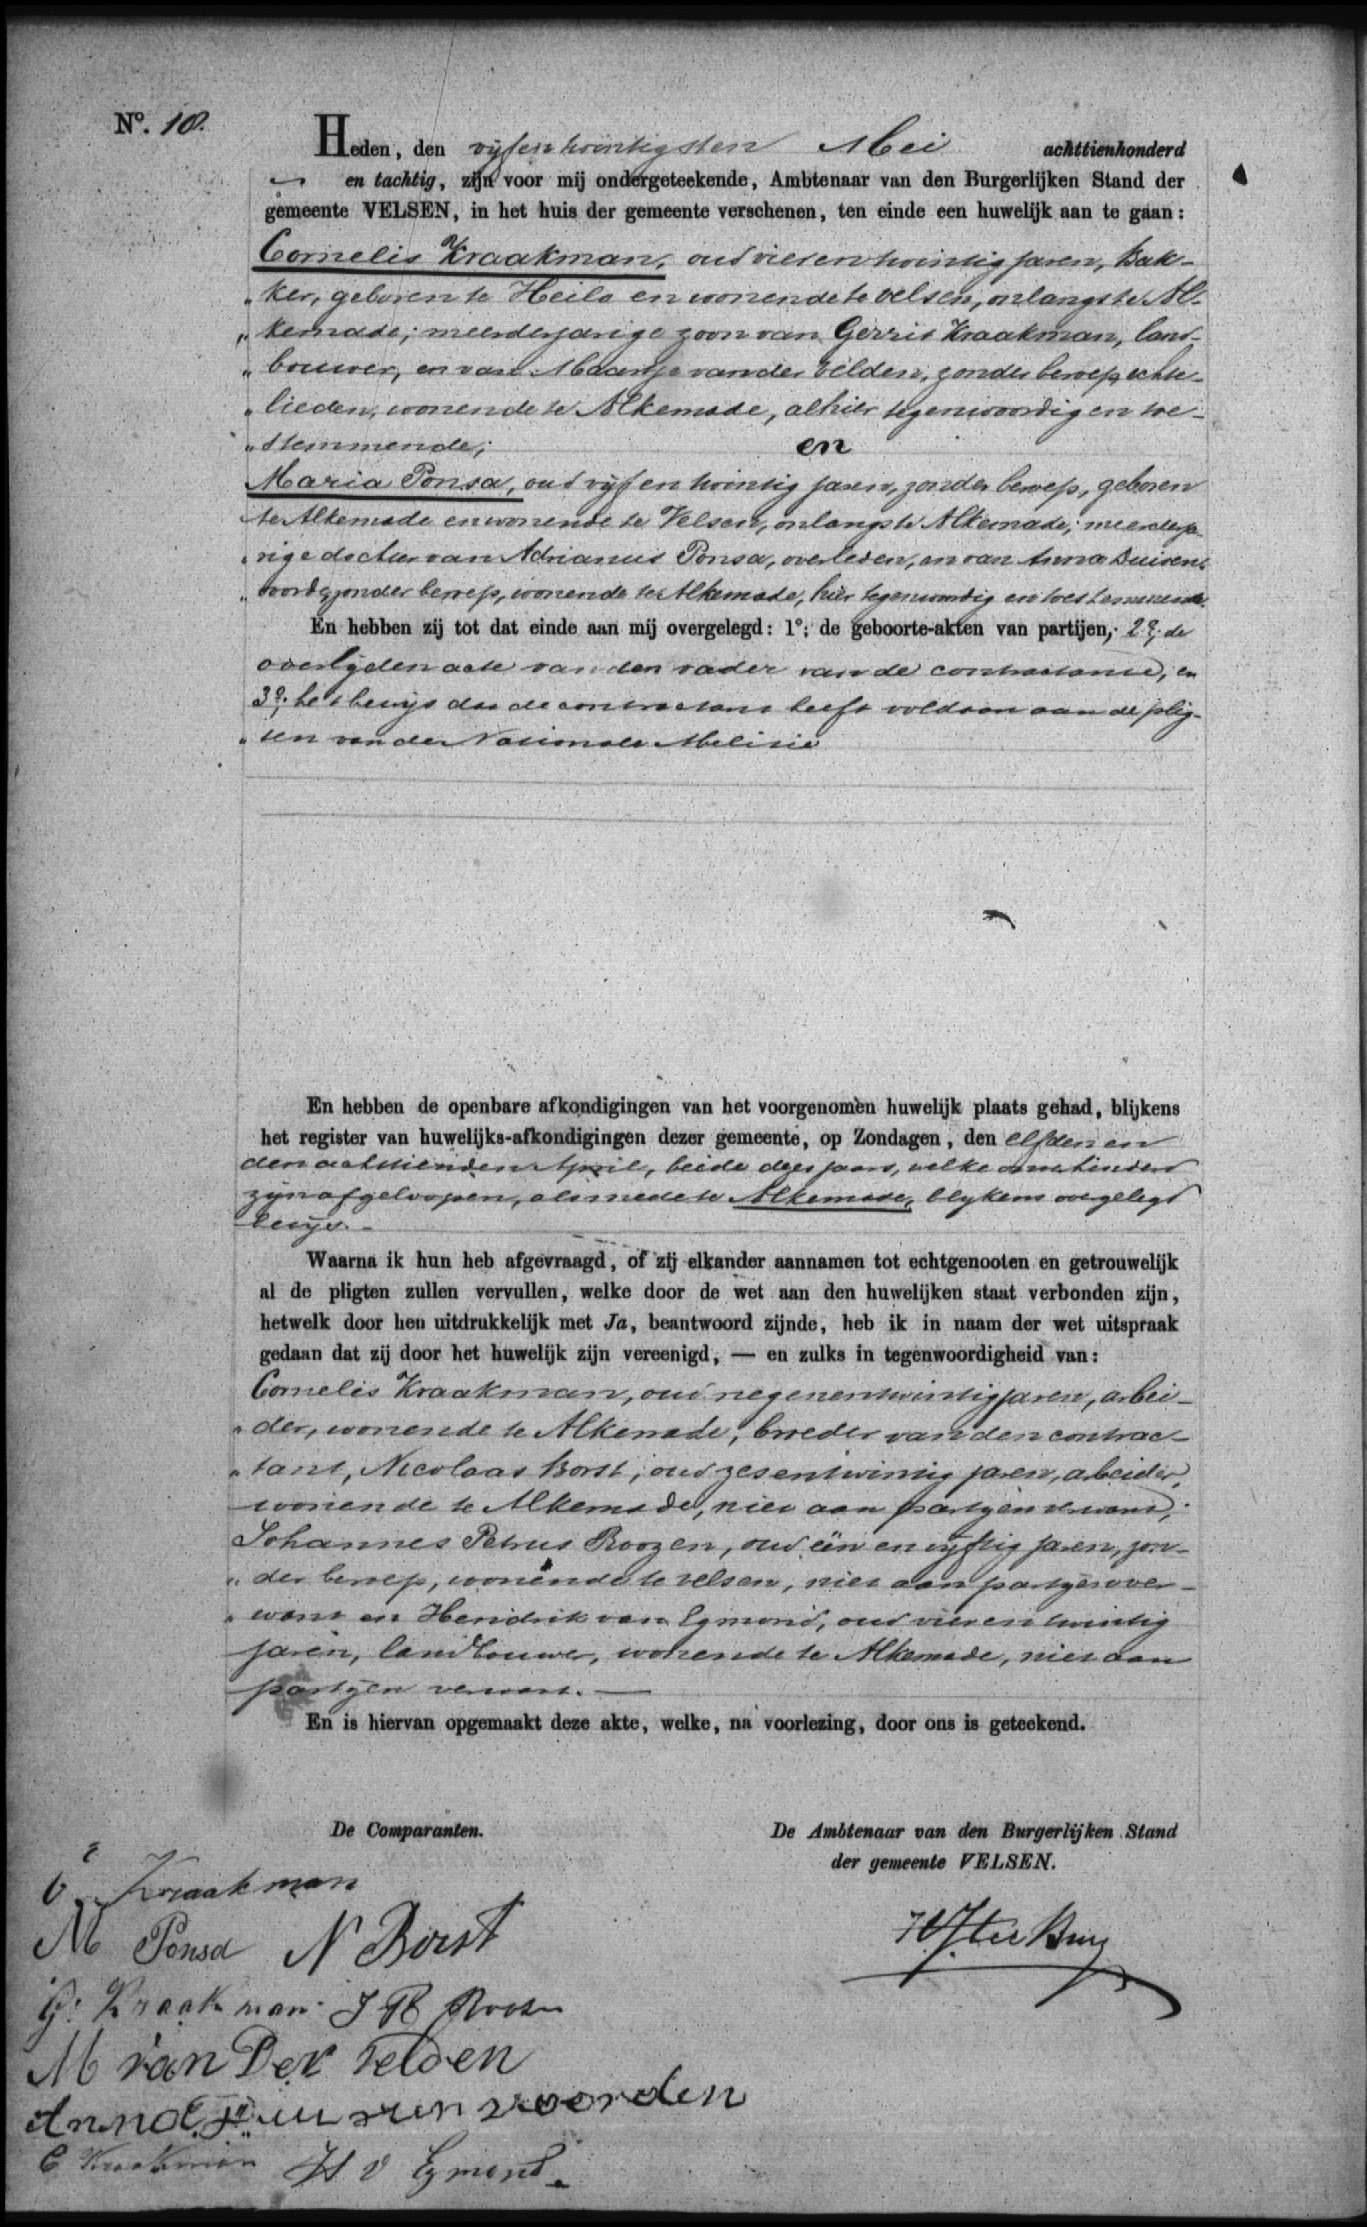 Nº. 18.
Heden, den vijfentwintigsten Mei achttienhonderd
en tachtig, zijn voor mij ondergeteekende, Ambtenaar van den Burgerlijken Stand der
gemeente VELSEN, in het huis der gemeente verschenen, ten einde een huwelijk aan te gaan:
Cornelis Kraakman, oud vierentwintig jaren, Bak-
„ker, geboren te Heilo en wonende te Velsen, onlangs te Al-
„kemade; meerderjarige zoon van Gerrit Kraakman, land-
„bouwer, en van Maartje van der Velden, zonder beroep, echte-
„lieden, wonende te Alkemade, alhier tegenwoordig en toe-
„stemmende;
en
Maria Ponsa, oud vijfentwintig jaren, zonder beroep, geboren
te Alkemade en wonende te Velsen, onlangs te Alkemade; meerderja-
„rige dochter van Adrianus Ponsa, overleden, en van Anna Duisens-
„voord, zonder beroep, wonende te Alkemade, hier tegenwoordig en toestemmende.
En hebben zij tot dat einde aan mij overgelegd: 1º; de geboorte-akten van partijen, 2º; de
overlijdenacte van den vader van de contractante, en
3º; het bewijs dat de contractant heeft voldaan aan de plig-
„ten van de Nationale Militie
En hebben de openbare afkondigingen van het voorgenomen huwelijk plaats gehad, blijkens
het register van huwelijks-afkondigingen dezer gemeente, op Zondagen, den elfden en
den achttienden April, beide dezes jaars, welke onverhinderd
zijn afgeloopen, alsmede te Alkemade, blijkens overgelegd
bewijs.-
Waarna ik hun heb afgevraagd, of zij elkander aannamen tot echtgenooten en getrouwelijk
al de pligten zullen vervullen, welke door de wet aan den huwelijken staat verbonden zijn,
hetwelk door hen uitdrukkelijk met Ja, beantwoord zijnde, heb ik in naam der wet uitspraak
gedaan dat zij door het huwelijk zijn vereenigd, — en zulks in tegenwoordigheid van:
Cornelis Kraakman, oud negenentwintig jaren, arbei-
„der, wonende te Alkemade, broeder van den contrac-
„tant, Nicolaas Borst, oud zesentwintig jaren, arbeider,
wonende te Alkemade, niet aan partijen verwant;
Johannes Petrus Roozen, oud één en vijftig jaren, zon-
„der beroep, wonende te Velsen, niet aan partijen ver-
„want en Hendrik van Egmond, oud vierentwintig
jaren, landbouwer, wonende te Alkemade, niet aan
partijen verwant. —
En is hiervan opgemaakt deze akte, welke, na voorlezing, door ons is geteekend.
De Comparanten.
De Ambtenaar van den Burgerlijken Stand
der gemeente VELSEN.
C Kraakman
M Ponsa N Borst
G: Kraakman J P Roozen
M van Der Velden
Anna voorden
C Kraakman H v Egmond.